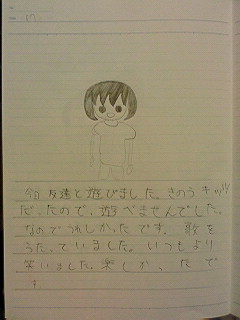 友達と遊びました。きのうキッツ
だったので、遊べませんでした。
なのでうれしかったです。歌を
うたっていました。いつもより
笑いました。楽しかったで
す。